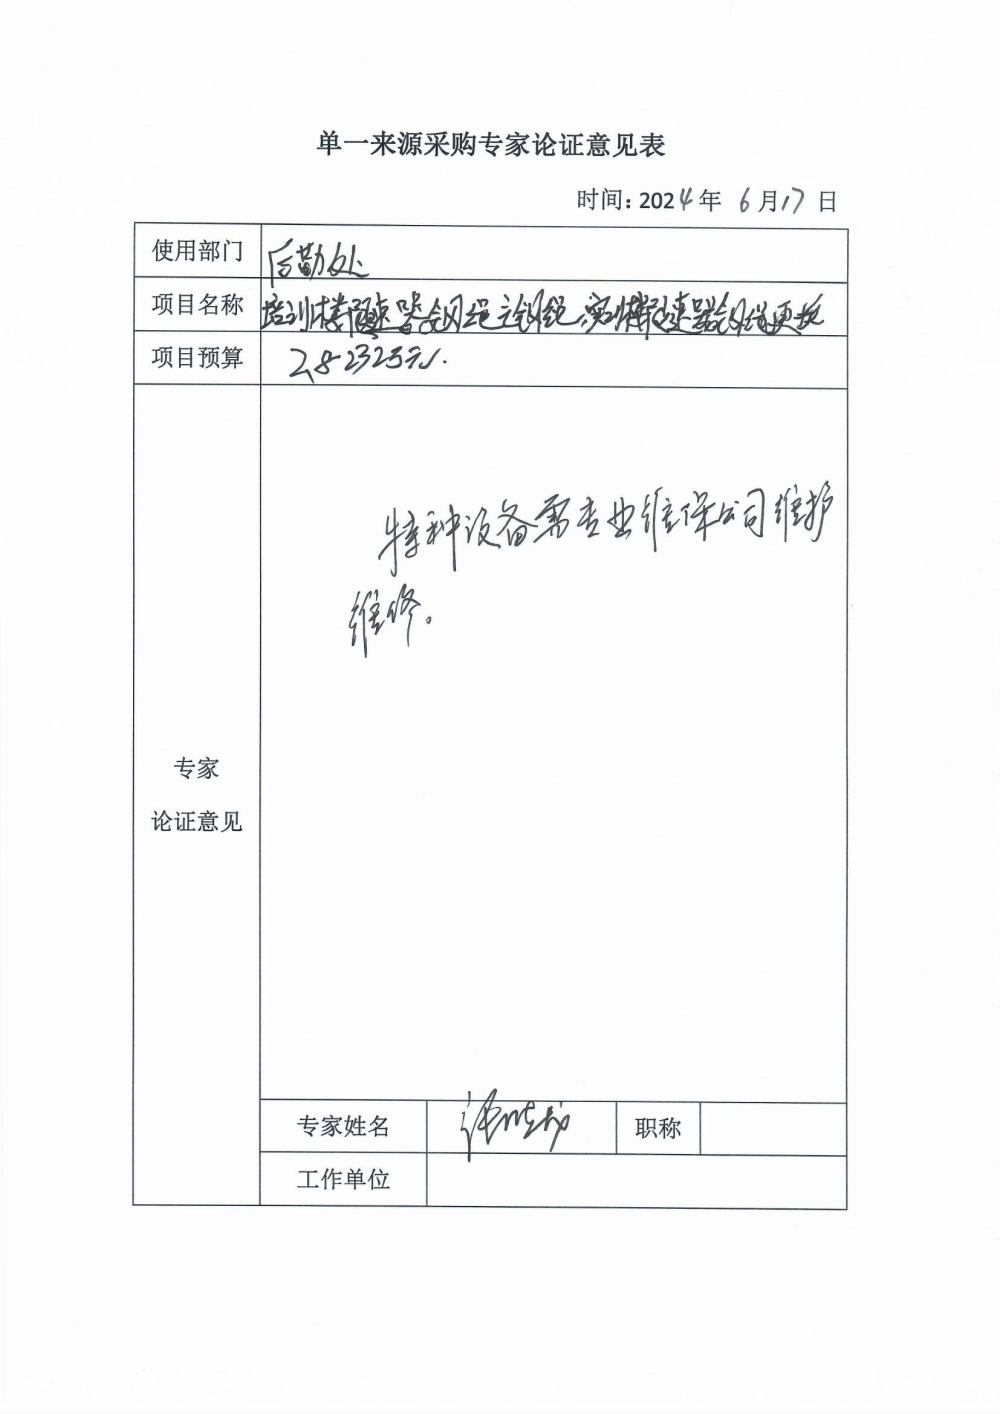 单一来源采购专家论证意见表
时间：2024年 6月17日
使用部门 后勤处
项目名称 培训楼限速器钢丝绳主钢丝绳,实训楼限速器钢丝绳更换
项目预算
专家
论证意见
特种设备需专业维保公司维护
维修。
专家姓名 职称
工作单位